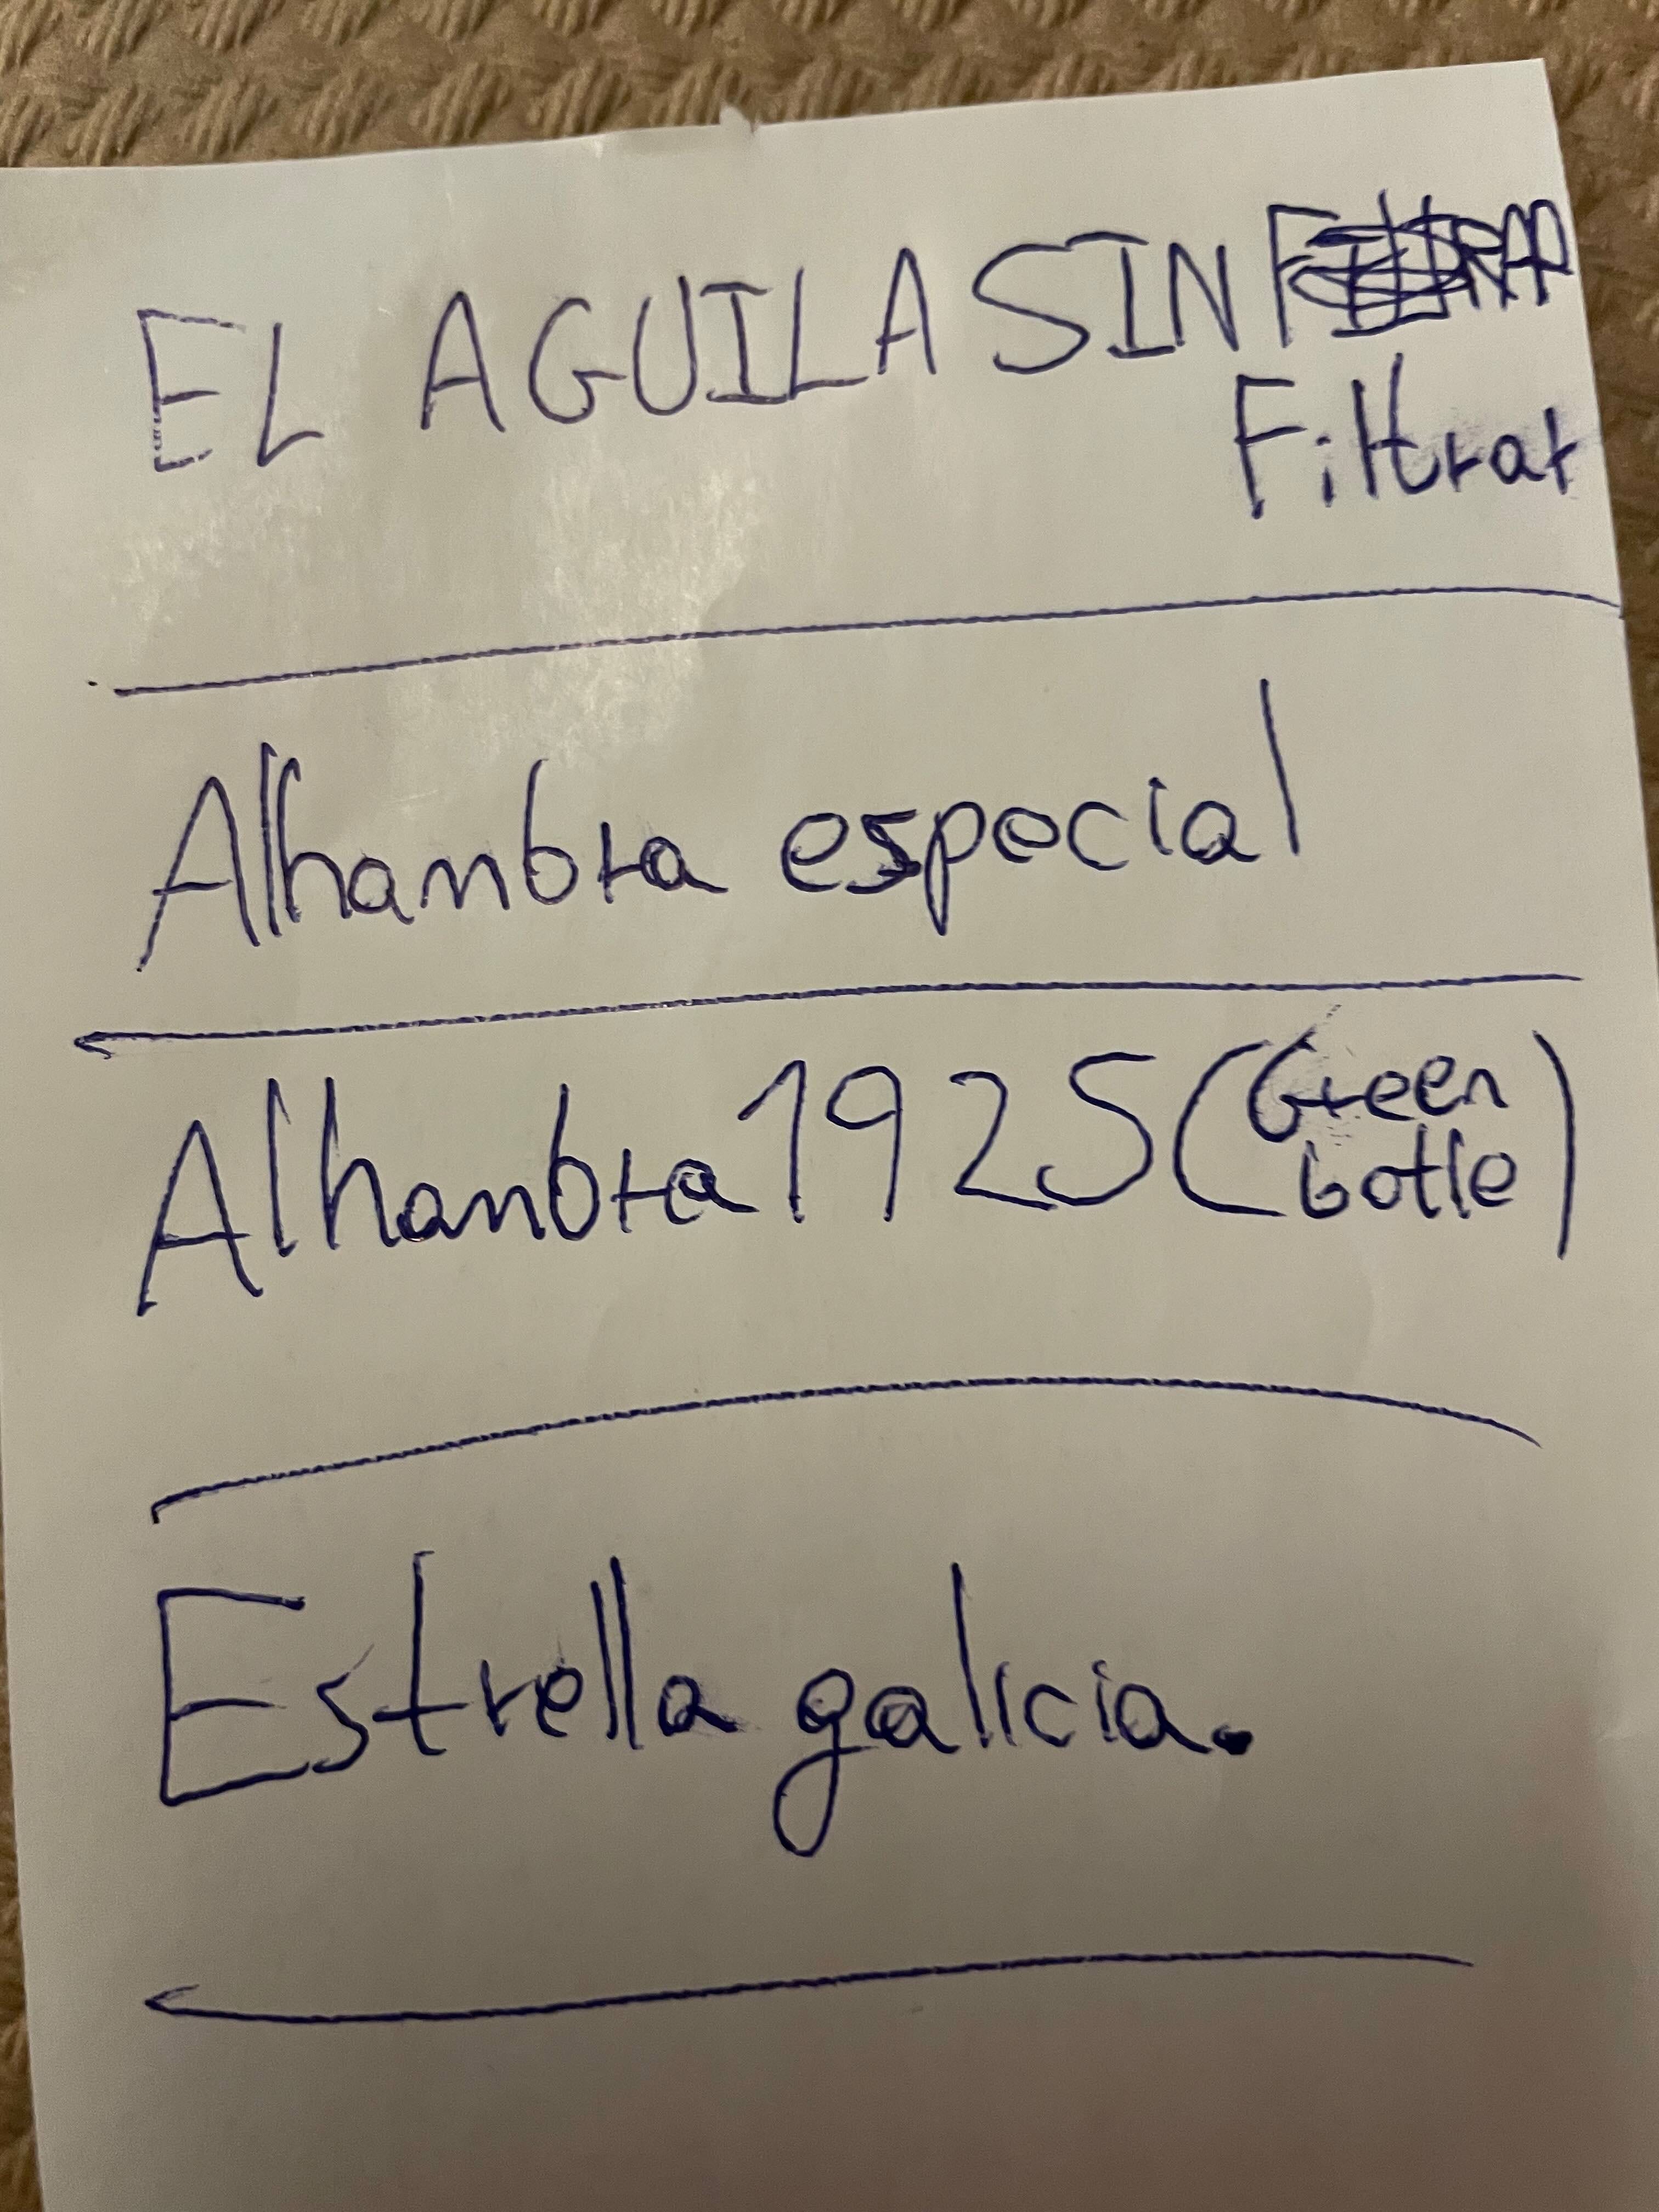 EL AGUILA SIN
Filtrar
Alhambra especial
Alhambra 1925 (Green
botle)
Estrella galicia.